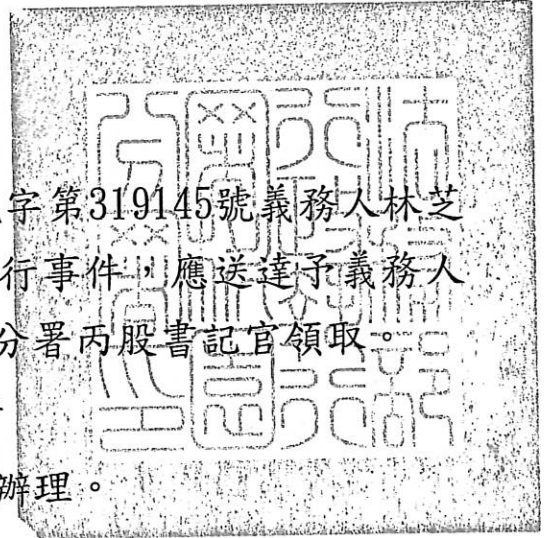 字第319145號義務人林芝
行事件，應送達予義務人
分署丙股書記官領取。
辦理。